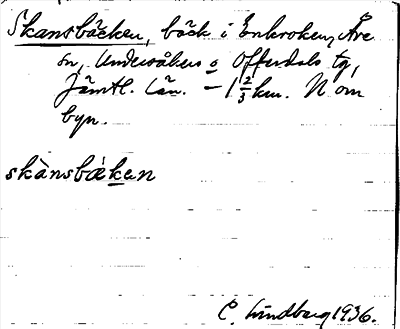 Skansbäcken, bäck i Enkroken, Åre
sn, Undersåkers o Offerdals tg,
Jämtl. län. – 1 2/3 km. N om
byn.
skànsbäken
C. Lindberg 1936.